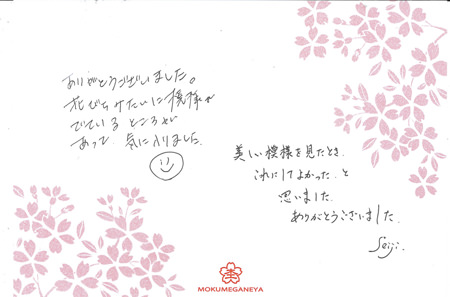 ありがとうございました。
花びらみたいに模様が
でている ところが
あって 気に入りました
美しい模様を見たとき、
これにしてよかった、と
思いました
ありがとうございました
Seiji.
MOKUMEGANEYA